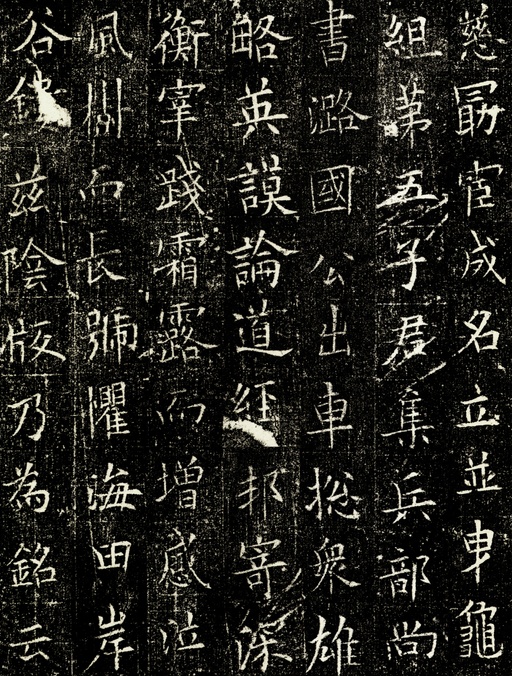 慈勗宦成名立並申龜
組第五子君集兵部尚
書潞國公出車捴衆雄
略英謨論道經邦寄深
衡宰踐霜露而增感泣
風樹而長號懼海田岸
谷鐫兹陰版乃為銘云